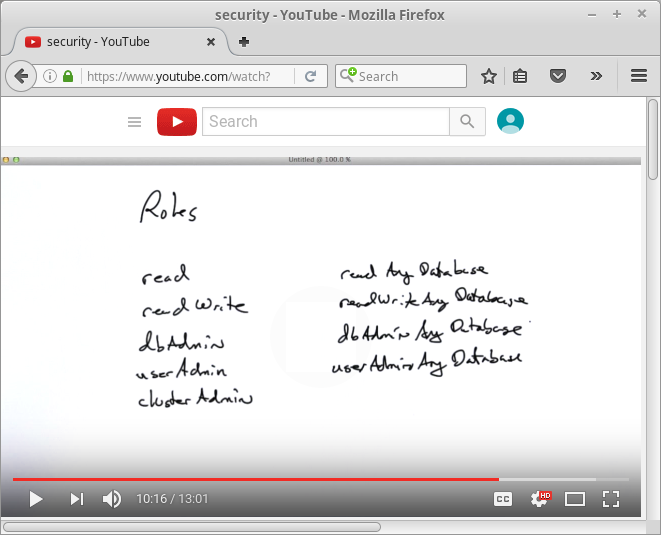 security - YouTube - Mozilla Firefox
security - YouTube
https://www.youtube.com/watch?
Search
Search
Untitled @ 100.0 %
Roles
read
readWrite
dbAdmin
userAdmin
clusterAdmin
read Any Database
readWrite Any Database
dbAdmin Any Database
userAdmin Any Database
10:16 / 13:01
CC
HD